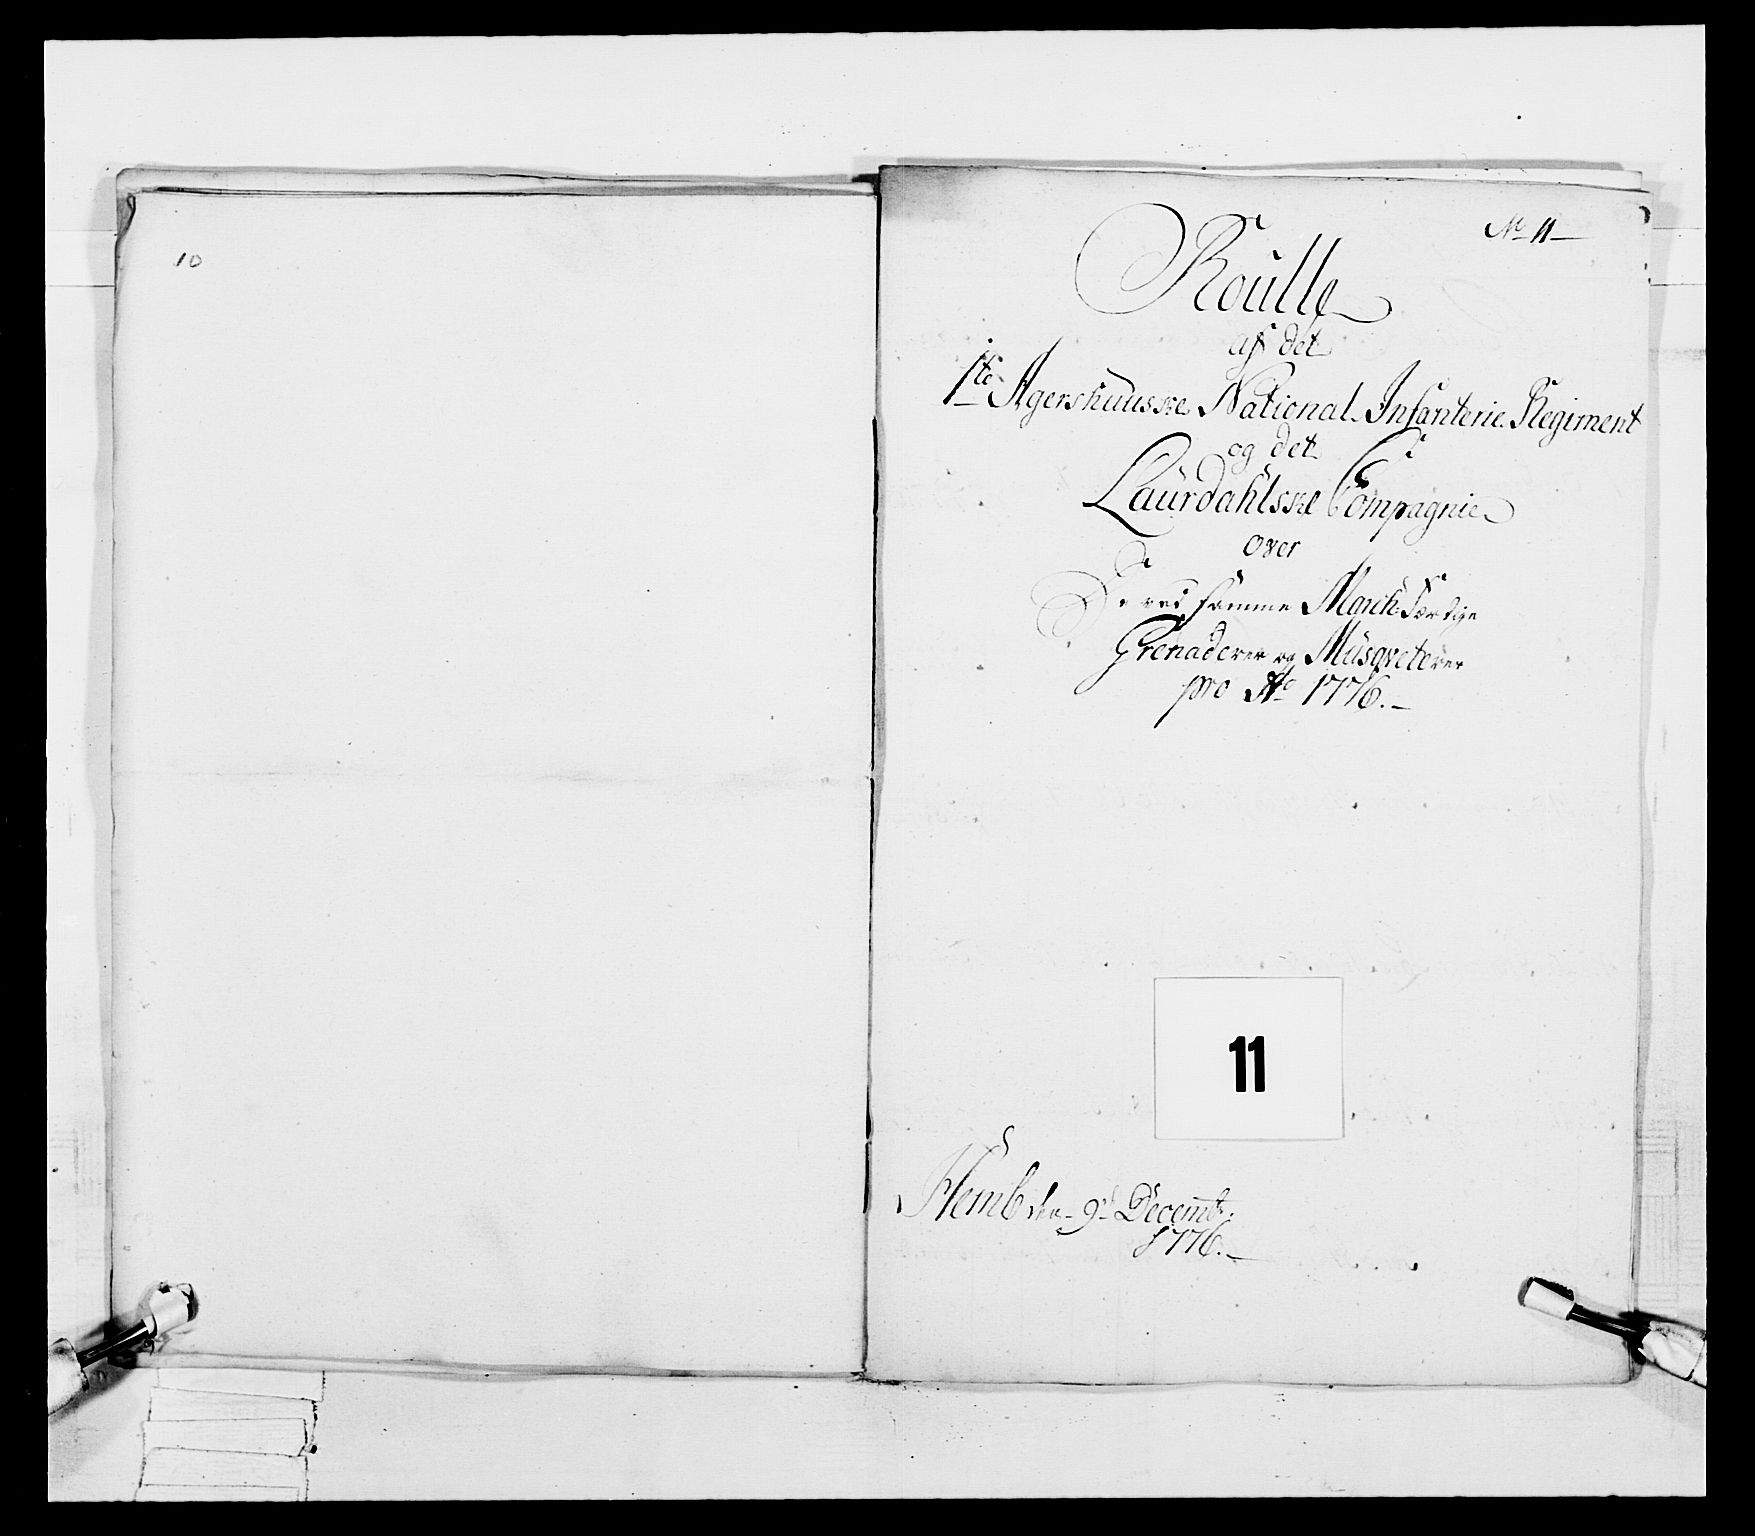 10
No 11
Roulle
af det
1te Agershuuske National Infanterie Regiment
og det
Laurdahlske Compagnie
over
De ved samme March Færdige
Grenaderer og Musqveterer
pro Ao 1776.
11
Hemb den 9de Decembr.
1776.